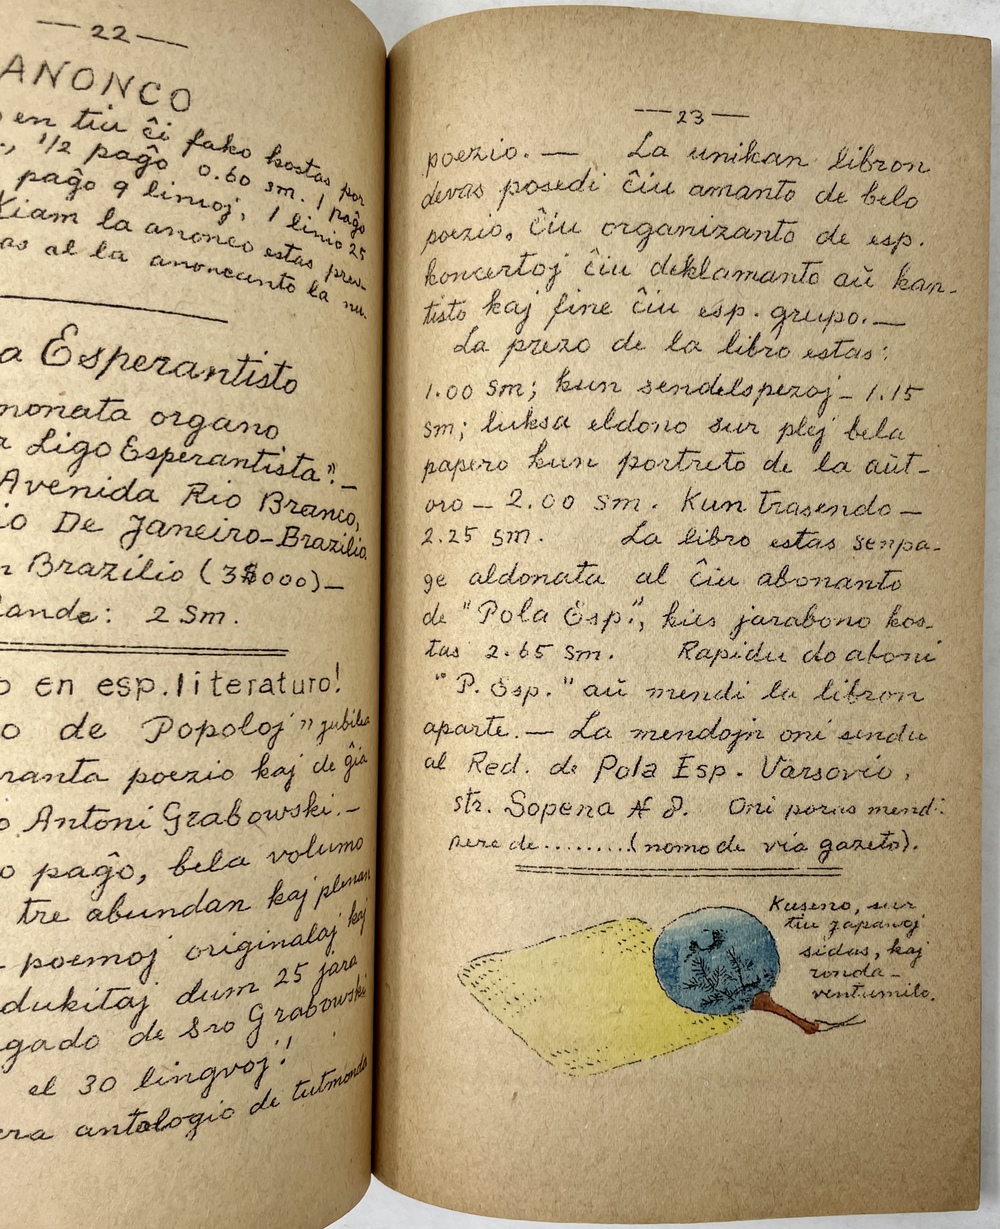 — 22 —
ANONCO
en tiu ĉi fako kostas por
1/2 paĝo 0.60 sm. 1 paĝo
paĝo 9 linioj, 1 linio 25
Kiam la anonco estas pres-
as al la anoncanto la nu.
a Esperantisto
monata organo
Ligo Esperantista".—
Avenida Rio Branco,
io De Janeiro-Brazilio.
n Brazilio (3$000)—
lando: 2 Sm.
o en esp. literaturo!
o de Popoloj" jubilea
ranta poezio kaj de ĝia
o Antoni Grabowski.—
o paĝo, bela volumo
tre abundan kaj plenan
poemoj originalaj kaj
dukitaj dum 25 jara
gado de Sro Grabowski
el 30 lingvoj!
era antologio de tutmonda
— 23 —
poezio. — La unikan libron
devas posedi ĉiu amanto de bela
poezio, ĉiu organizanto de esp.
koncertoj ĉiu deklamanto aŭ kan-
tisto kaj fine ĉiu esp. grupo.—
La prezo de la libro estas:
1.00 sm; kun sendelspezoj – 1.15
sm; luksa eldono sur plej bela
papero kun portreto de la aŭt-
oro – 2.00 sm. Kun trasendo –
2.25 sm. La libro estas senpa-
ge aldonata al ĉiu abonanto
de "Pola Esp.", kies jarabono kos-
tas 2.65 sm. Rapidu do aboni
"P. Esp." aŭ mendi la libron
aparte. — La mendojn oni sendu
al Red. de Pola Esp. Varsovio,
str. Sopena № 8. Oni povas mendi
pere de.........(nomo de via gazeto).
Kuseno, sur
tiu japanoj
sidas, kaj
ronda-
ventumilo.